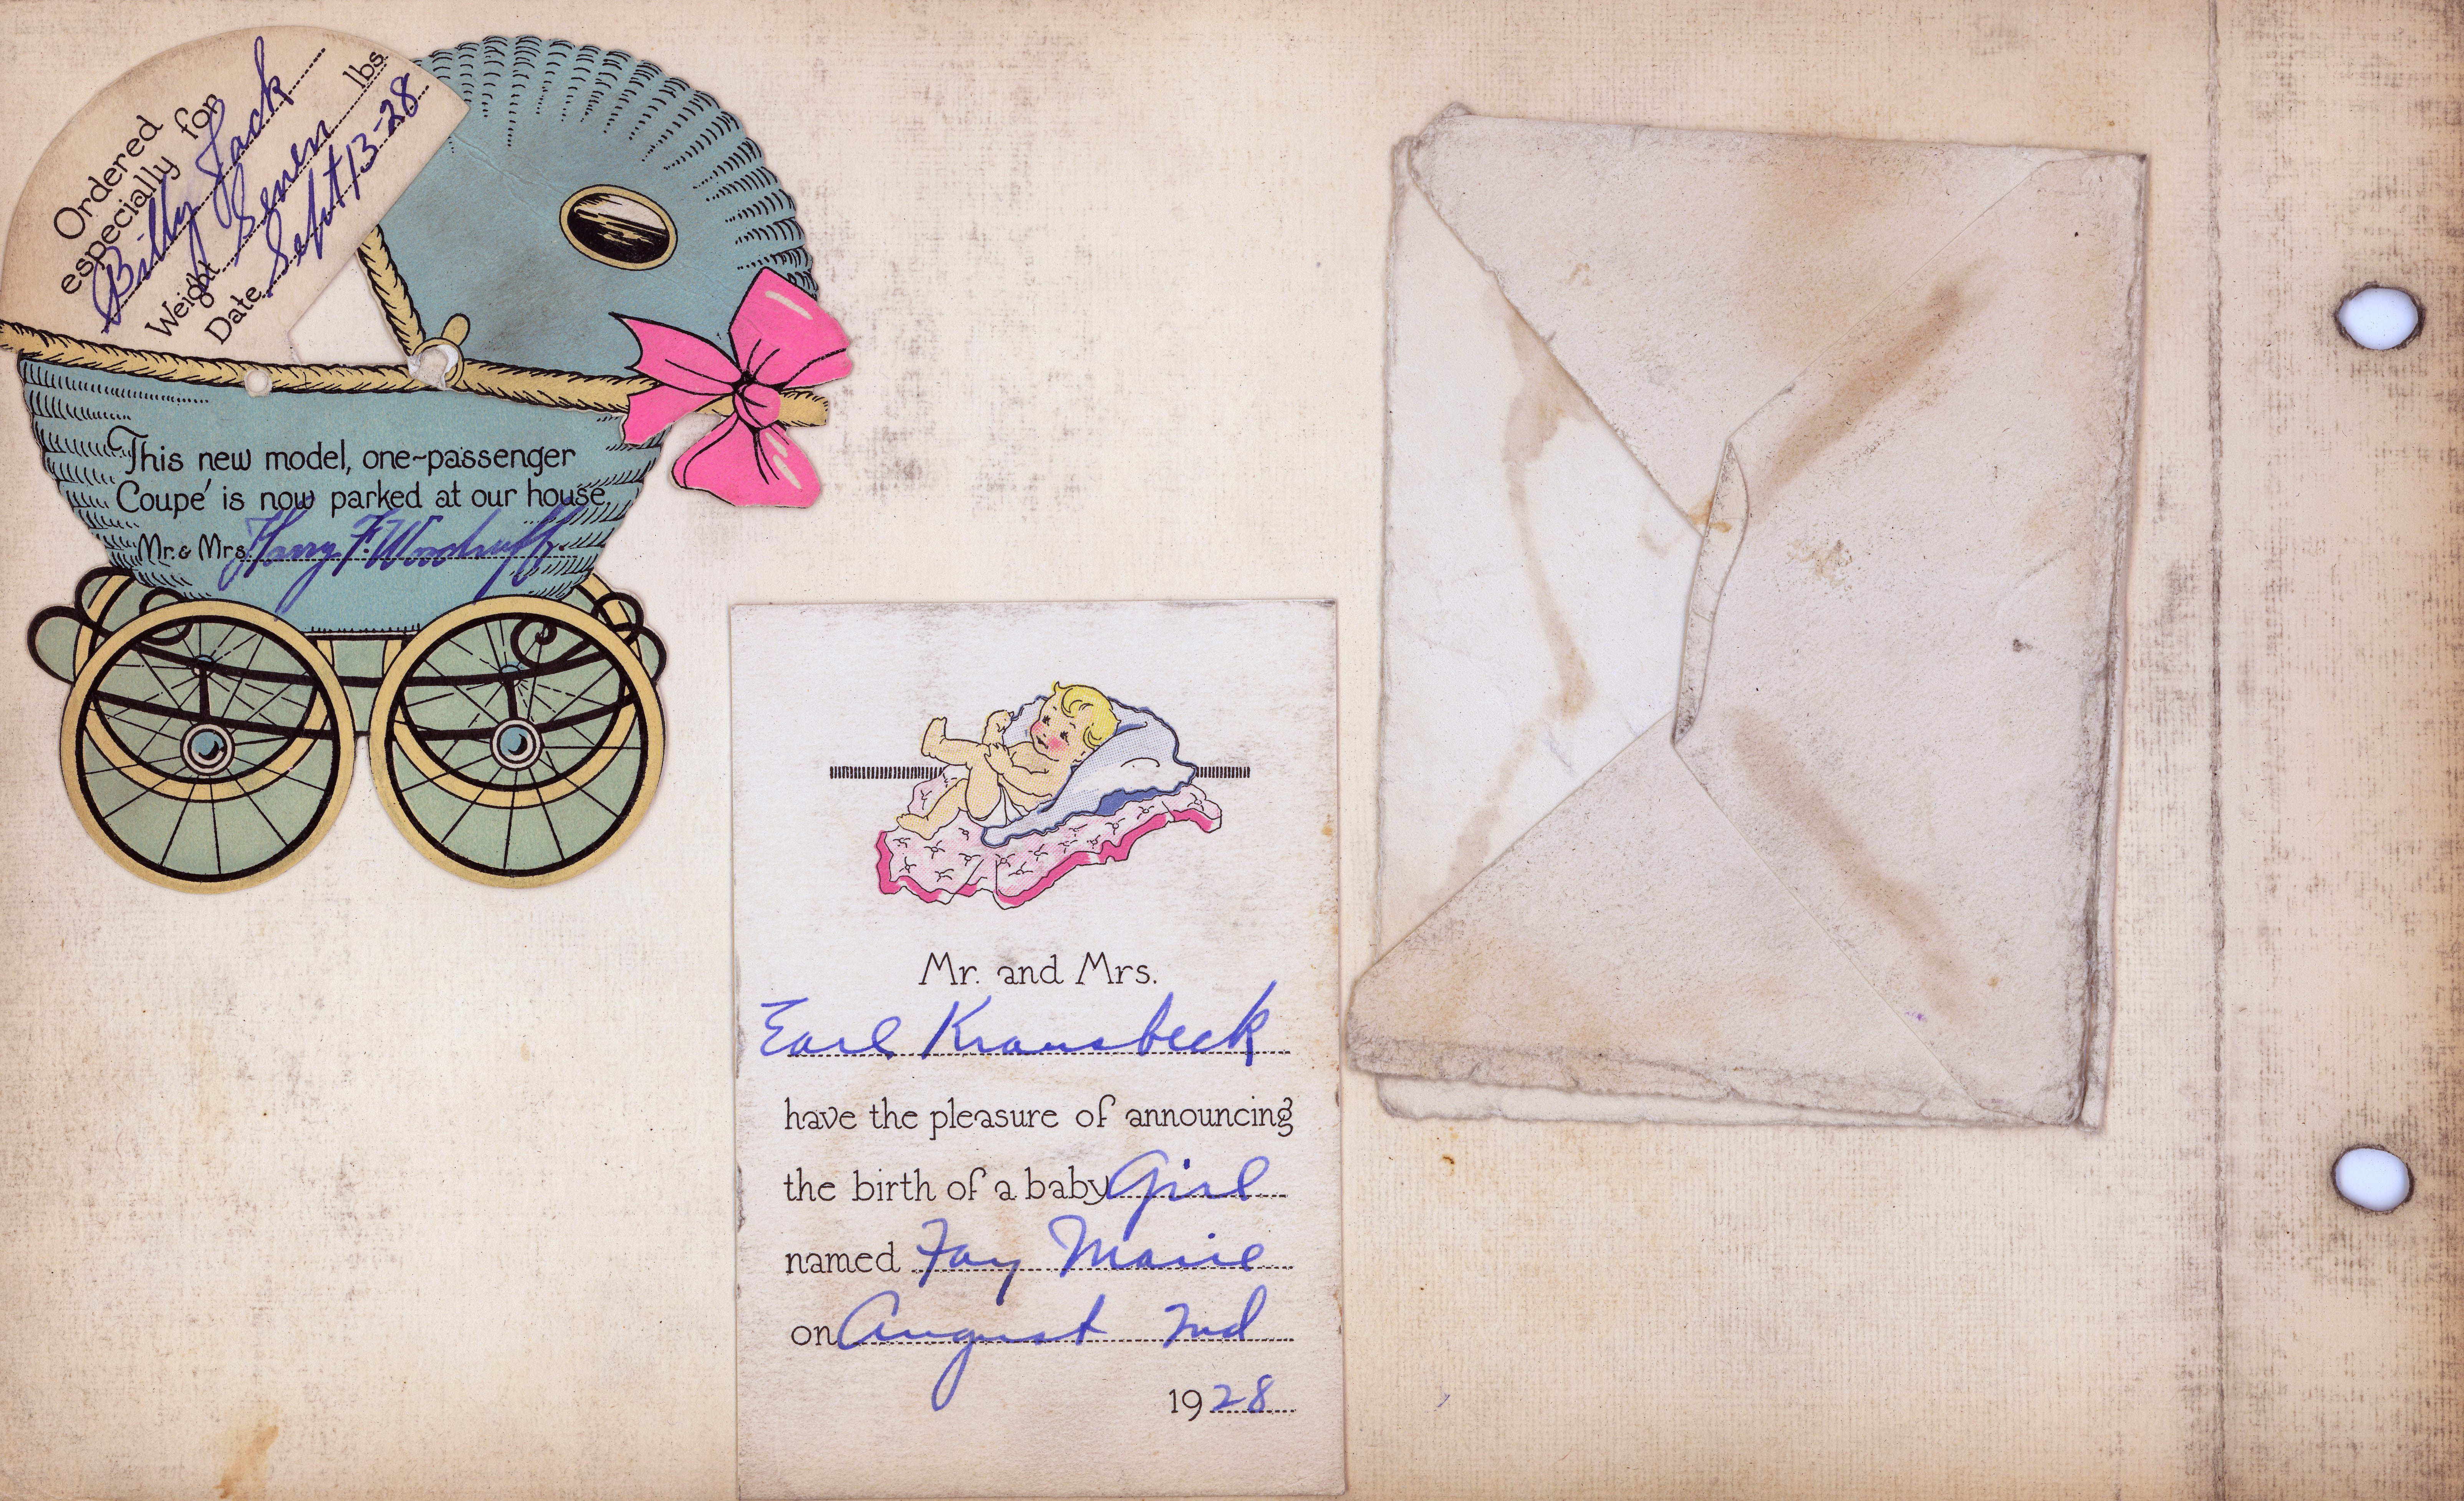 Ordered
especially for
Billy Jack
Weight Seven lbs.
Date Sept 13-28
This new model, one-passenger
Coupé is now parked at our house.
Mr. & Mrs. Harry F. Woodruff.
Mr. and Mrs.
Earl Kransbeck
have the pleasure of announcing
the birth of a baby Girl
named Fay Marie
on August 2nd
1928